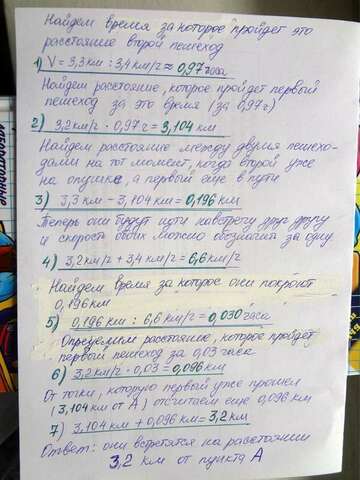 Найдем время за которое пройдет это
расстояние второй пешеход
1) V = 3,3км : 3,4 км/г ≈ 0,97 часа
Найдем расстояние, которое пройдет первый
пешеход за это время (за 0,97г)
2) 3,2 км/г · 0,97г = 3,104 км
Найдем расстояние между двумя пешехо-
дами на тот момент, когда второй уже
на опушке, а первый еще в пути
3) 3,3 км – 3,104 км = 0,196 км
Теперь они будут идти навстречу друг другу
и скорость обоих можно обозначить за одну
4) 3,2 км/г + 3,4 км/г = 6,6 км/г
Найдем время за которое они покроют
0,196 км
5) 0,196 км : 6,6 км/г = 0,030 часа
Определим расстояние, которое пройдет
первый пешеход за 0,03 часа
6) 3,2 км/г · 0,03 = 0,096 км
От точки, которую первый уже прошел
(3,104 км от А) отсчитаем еще 0,096 км
7) 3,104 км + 0,096 км = 3,2 км
Ответ: они встретятся на расстоянии
3,2 км от пункта А